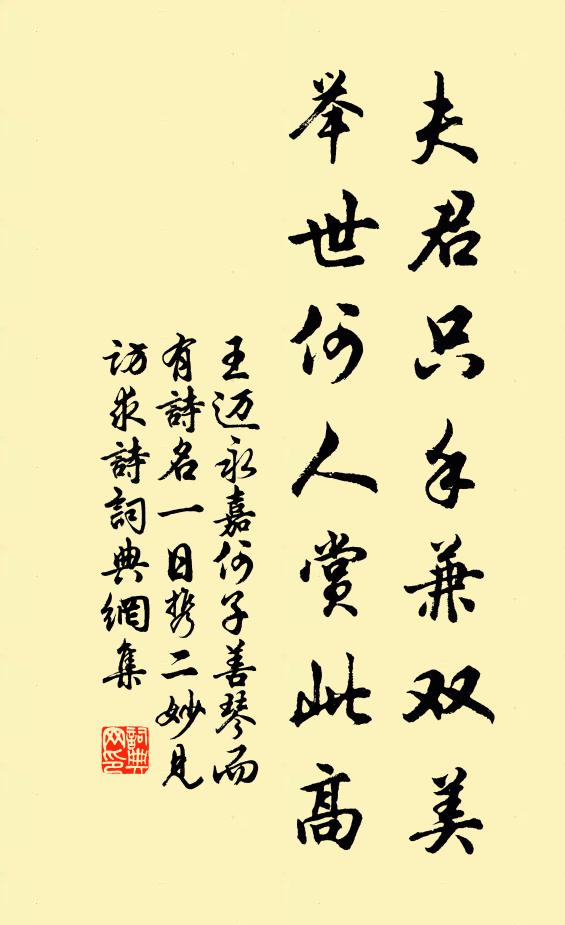 夫君只手兼双美
举世何人赏此高
王迈永嘉何子善琴而
有詩名一日携二妙见
访求詩詞典網集
詞典网印